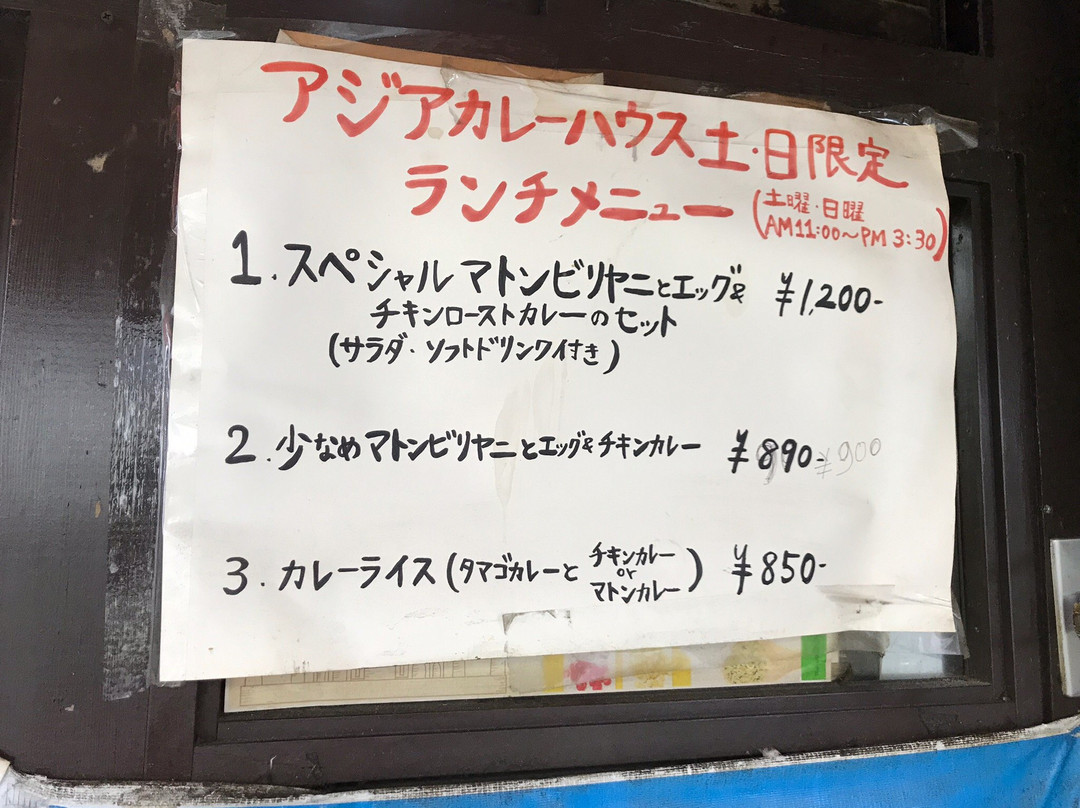 アジアカレーハウス土・日限定
ランチメニュー
(土曜・日曜
AM11:00～PM 3:30)
1. スペシャル マトンビリヤニとエッグ& ¥1,200-
チキンローストカレーのセット
(サラダ・ソフトドリンク付き)
2. 少なめマトンビリヤニとエッグ&チキンカレー ¥890- ¥900
3. カレーライス(タマゴカレーと チキンカレー or マトンカレー) ¥850-